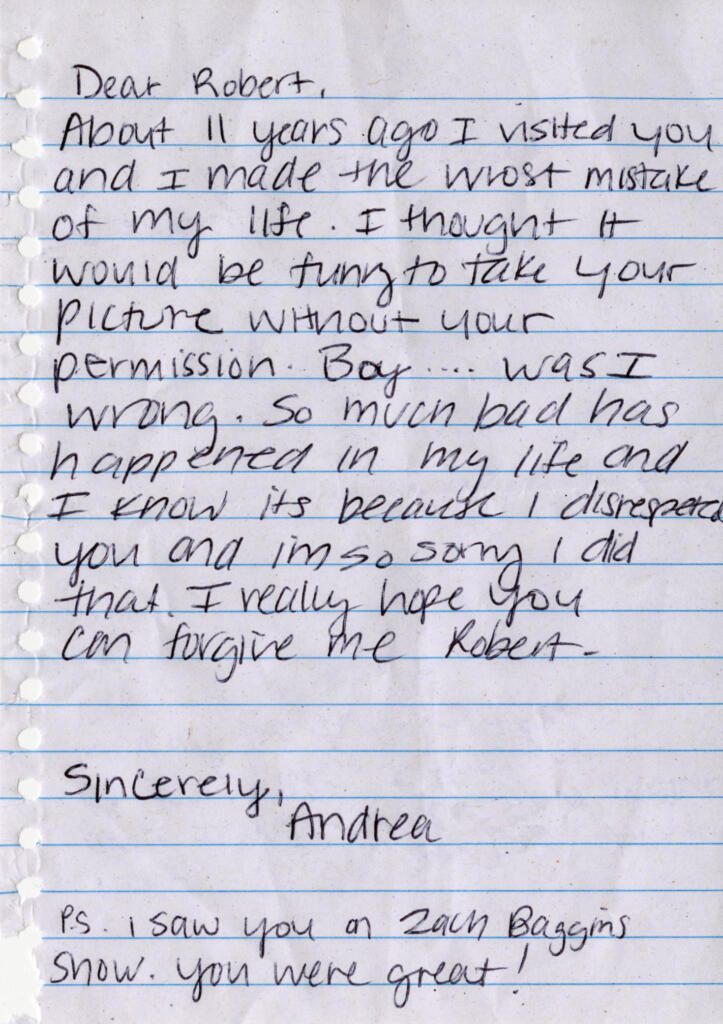 Dear Robert,
About 11 years ago I visited you
and I made the wrost mistake
of my life. I thought it
would be funny to take your
picture without your
permission. Boy .... was I
wrong. So much bad has
happened in my life and
I know its because I disrespected
you and im so sorry I did
that. I really hope you
can forgive me Robert-
Sincerely,
Andrea
P.S. i saw you on Zach Baggins
show. you were great!